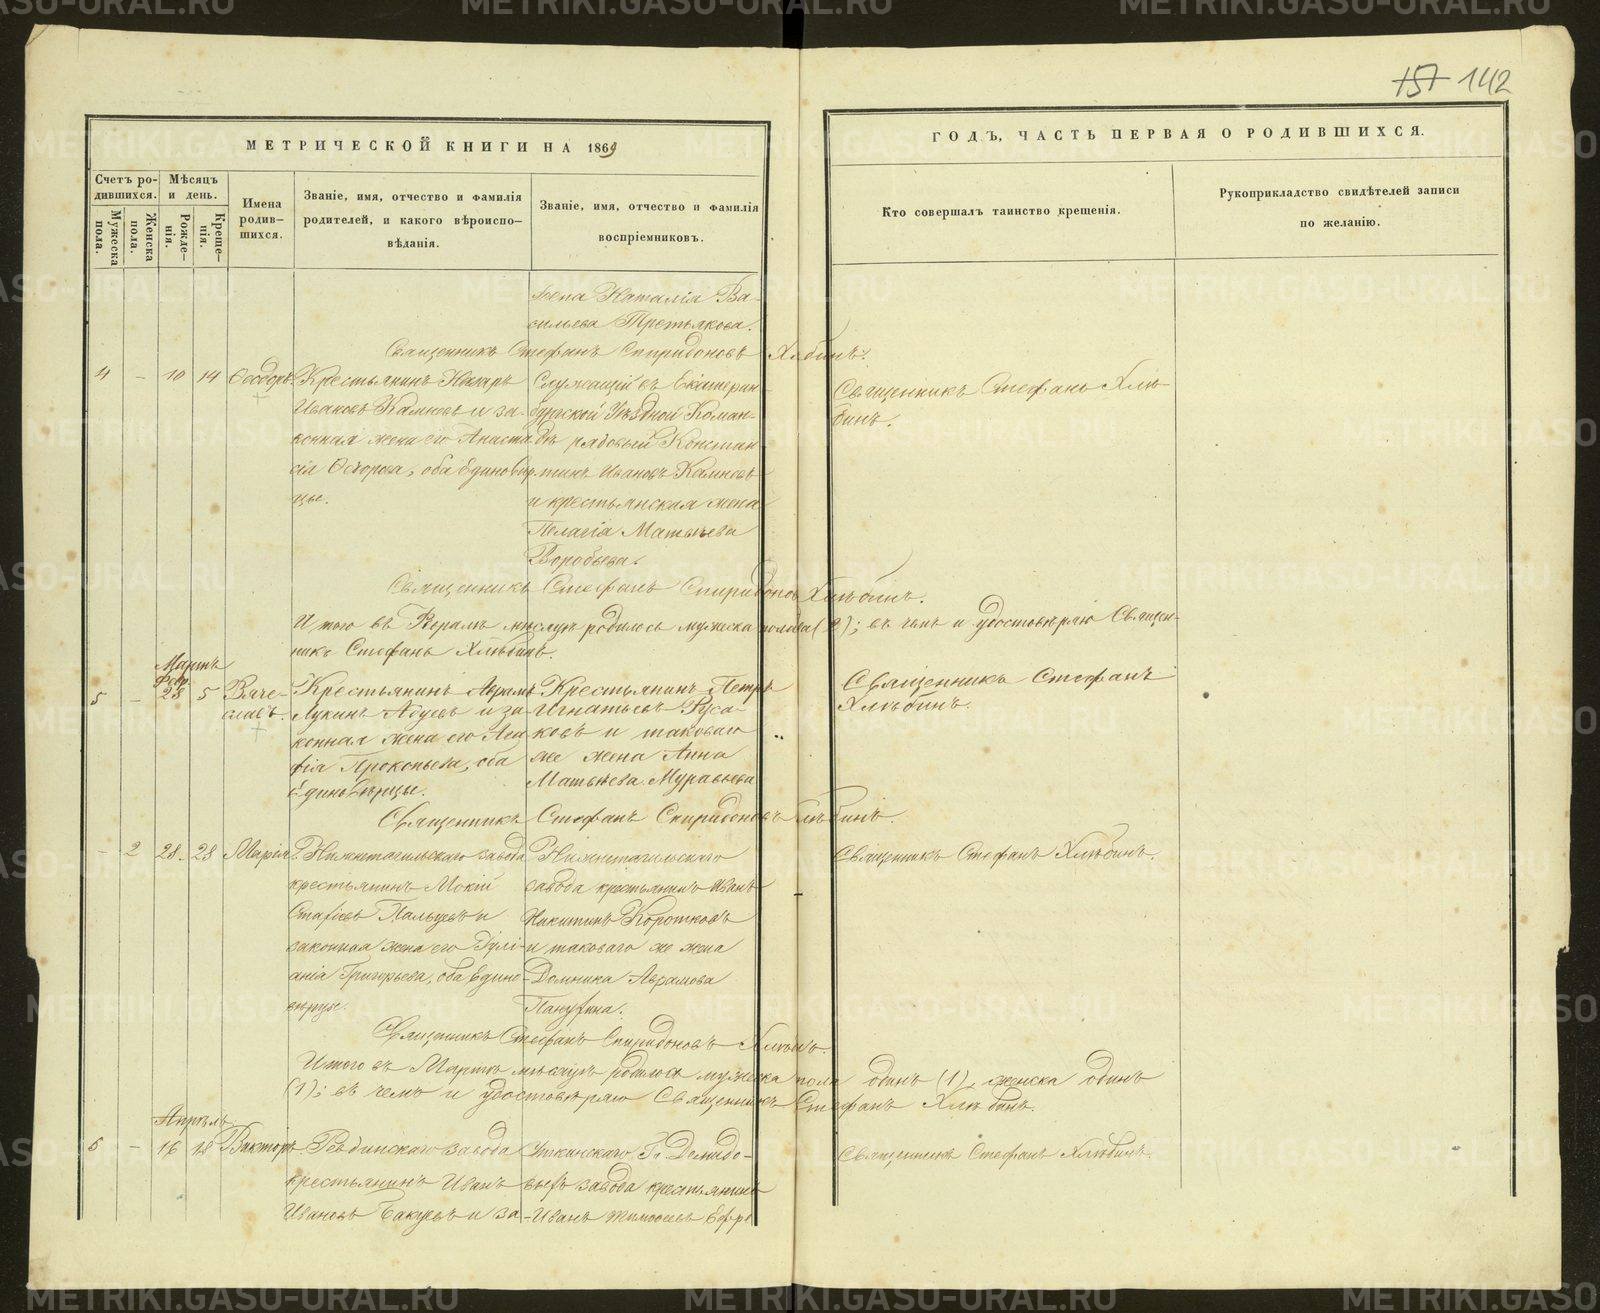 157 142
МЕТРИЧЕСКОЙ КНИГИ НА 1869
ГОДЪ, ЧАСТЬ ПЕРВАЯ О РОДИВШИХСЯ.
Счетъ ро-
дившихся.
Мужеска
пола.
Женска
пола.
Мѣсяцъ
и день.
Рожде-
нія.
Креще-
нія.
Имена
родив-
шихся.
Званіе, имя, отчество и фамилія
родителей, и какого вѣроиспо-
вѣданія.
Званіе, имя, отчество и фамилія
воспріемниковъ.
Кто совершалъ таинство крещенія.
Рукоприкладство свидѣтелей записи
по желанію.
жена Наталія Ва-
сильева Третьякова.
Священникъ Стефанъ Спиридоновъ Хлѣбинъ.
4 - 10 14 Ѳеодоръ
Крестьянинъ Назаръ
Ивановъ Каминовъ и за-
конная жена его Анаста
сія Ѳедорова, оба Единовѣр
цы.
Служащій въ Екатерин-
бургской Уѣздной Коман-
дѣ рядовый Констан
тинъ Ивановъ Каминовъ
и крестьянская жена
Пелагія Матвѣева
Воробьева.
Священникъ Стефанъ Хлѣ-
бинъ.
Священникъ Стефанъ Спиридоновъ Хлѣбинъ.
Итого въ Февралѣ мѣсяцѣ родилось мужеска пола два (2); въ чемъ и удостовѣряю Священ-
никъ Стефанъ Хлѣбинъ.
Мартъ
Февр.
5 - 28 5 Вяче-
славъ.
Крестьянинъ Аврамъ
Лукинъ и за-
конная жена его Ага
фія Прокопьева, оба
Единовѣрцы.
Крестьянинъ Петръ
Игнатьевъ Руса-
ковъ и таковаго
же жена Анна
Матвѣева Муравьева
Священникъ Стефанъ
Хлѣбинъ.
Священникъ Стефанъ Спиридоновъ Хлѣбинъ.
- 2 28 28 Марія
Нижнетагильскаго завода
крестьянинъ Мокій
Пальцевъ и
законная жена его Іулі-
анія Григорьева, оба Едино-
вѣрцы.
Нижнетагильскаго
завода крестьянинъ Иванъ
Никитинъ Коротковъ
и таковаго же жена
Домника Аврамова
Пануфина.
Священникъ Стефанъ Хлѣбинъ.
Священникъ Стефанъ Спиридоновъ Хлѣбинъ.
Итого въ Мартѣ мѣсяцѣ родилось мужеска пола одинъ (1), женска одинъ
(1); въ чемъ и удостовѣряю Священникъ Стефанъ Хлѣбинъ.
Апрѣль
5 - 16 18 Викторъ
Ревдинскаго завода
крестьянинъ Иванъ
Ивановъ и за-
Уткинскаго Гг. Демидо-
выхъ завода крестьянинъ
Иванъ Тимоѳеевъ
Священникъ Стефанъ Хлѣбинъ.
METRIKI.GASO-URAL.RU